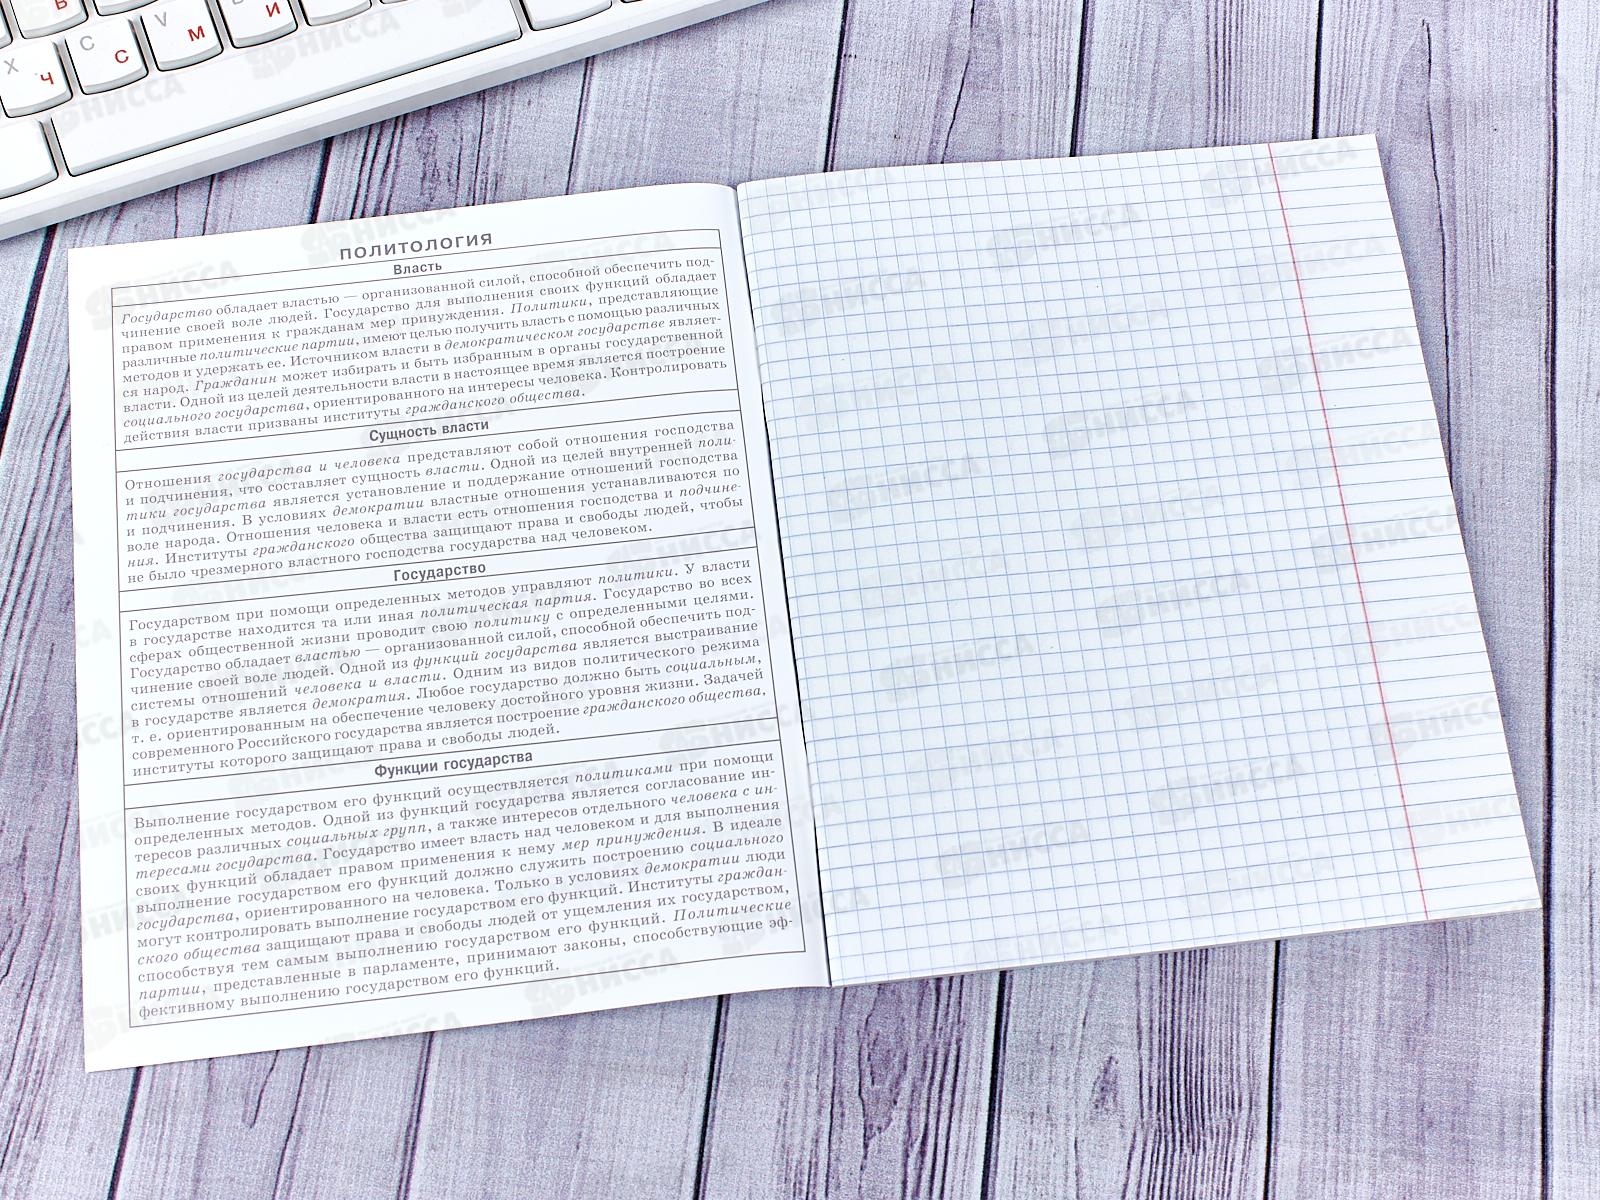 Ь
И
X
Ч
C
С
V
М
ПОЛИТОЛОГИЯ
Власть
Государство обладает властью — организованной силой, способной обеспечить под-
чинение своей воле людей. Государство для выполнения своих функций обладает
правом применения к гражданам мер принуждения. Политики, представляющие
различные политические партии, имеют целью получить власть с помощью различных
методов и удержать ее. Источником власти в демократическом государстве являет-
ся народ. Гражданин может избирать и быть избранным в органы государственной
власти. Одной из целей деятельности власти в настоящее время является построение
социального государства, ориентированного на интересы человека. Контролировать
действия власти призваны институты гражданского общества.
Сущность власти
Отношения государства и человека представляют собой отношения господства
и подчинения, что составляет сущность власти. Одной из целей внутренней поли-
тики государства является установление и поддержание отношений господства
и подчинения. В условиях демократии властные отношения устанавливаются по
воле народа. Отношения человека и власти есть отношения господства и подчине-
ния. Институты гражданского общества защищают права и свободы людей, чтобы
не было чрезмерного властного господства государства над человеком.
Государство
Государством при помощи определенных методов управляют политики. У власти
в государстве находится та или иная политическая партия. Государство во всех
сферах общественной жизни проводит свою политику с определенными целями.
Государство обладает властью — организованной силой, способной обеспечить под-
чинение своей воле людей. Одной из функций государства является выстраивание
системы отношений человека и власти. Одним из видов политического режима
в государстве является демократия. Любое государство должно быть социальным,
т. е. ориентированным на обеспечение человеку достойного уровня жизни. Задачей
современного Российского государства является построение гражданского общества,
институты которого защищают права и свободы людей.
Функции государства
Выполнение государством его функций осуществляется политиками при помощи
определенных методов. Одной из функций государства является согласование ин-
тересов различных социальных групп, а также интересов отдельного человека с ин-
тересами государства. Государство имеет власть над человеком и для выполнения
своих функций обладает правом применения к нему мер принуждения. В идеале
выполнение государством его функций должно служить построению социального
государства, ориентированного на человека. Только в условиях демократии люди
могут контролировать выполнение государством его функций. Институты граждан-
ского общества защищают права и свободы людей от ущемления их государством,
способствуя тем самым выполнению государством его функций. Политические
партии, представленные в парламенте, принимают законы, способствующие эф-
фективному выполнению государством его функций.